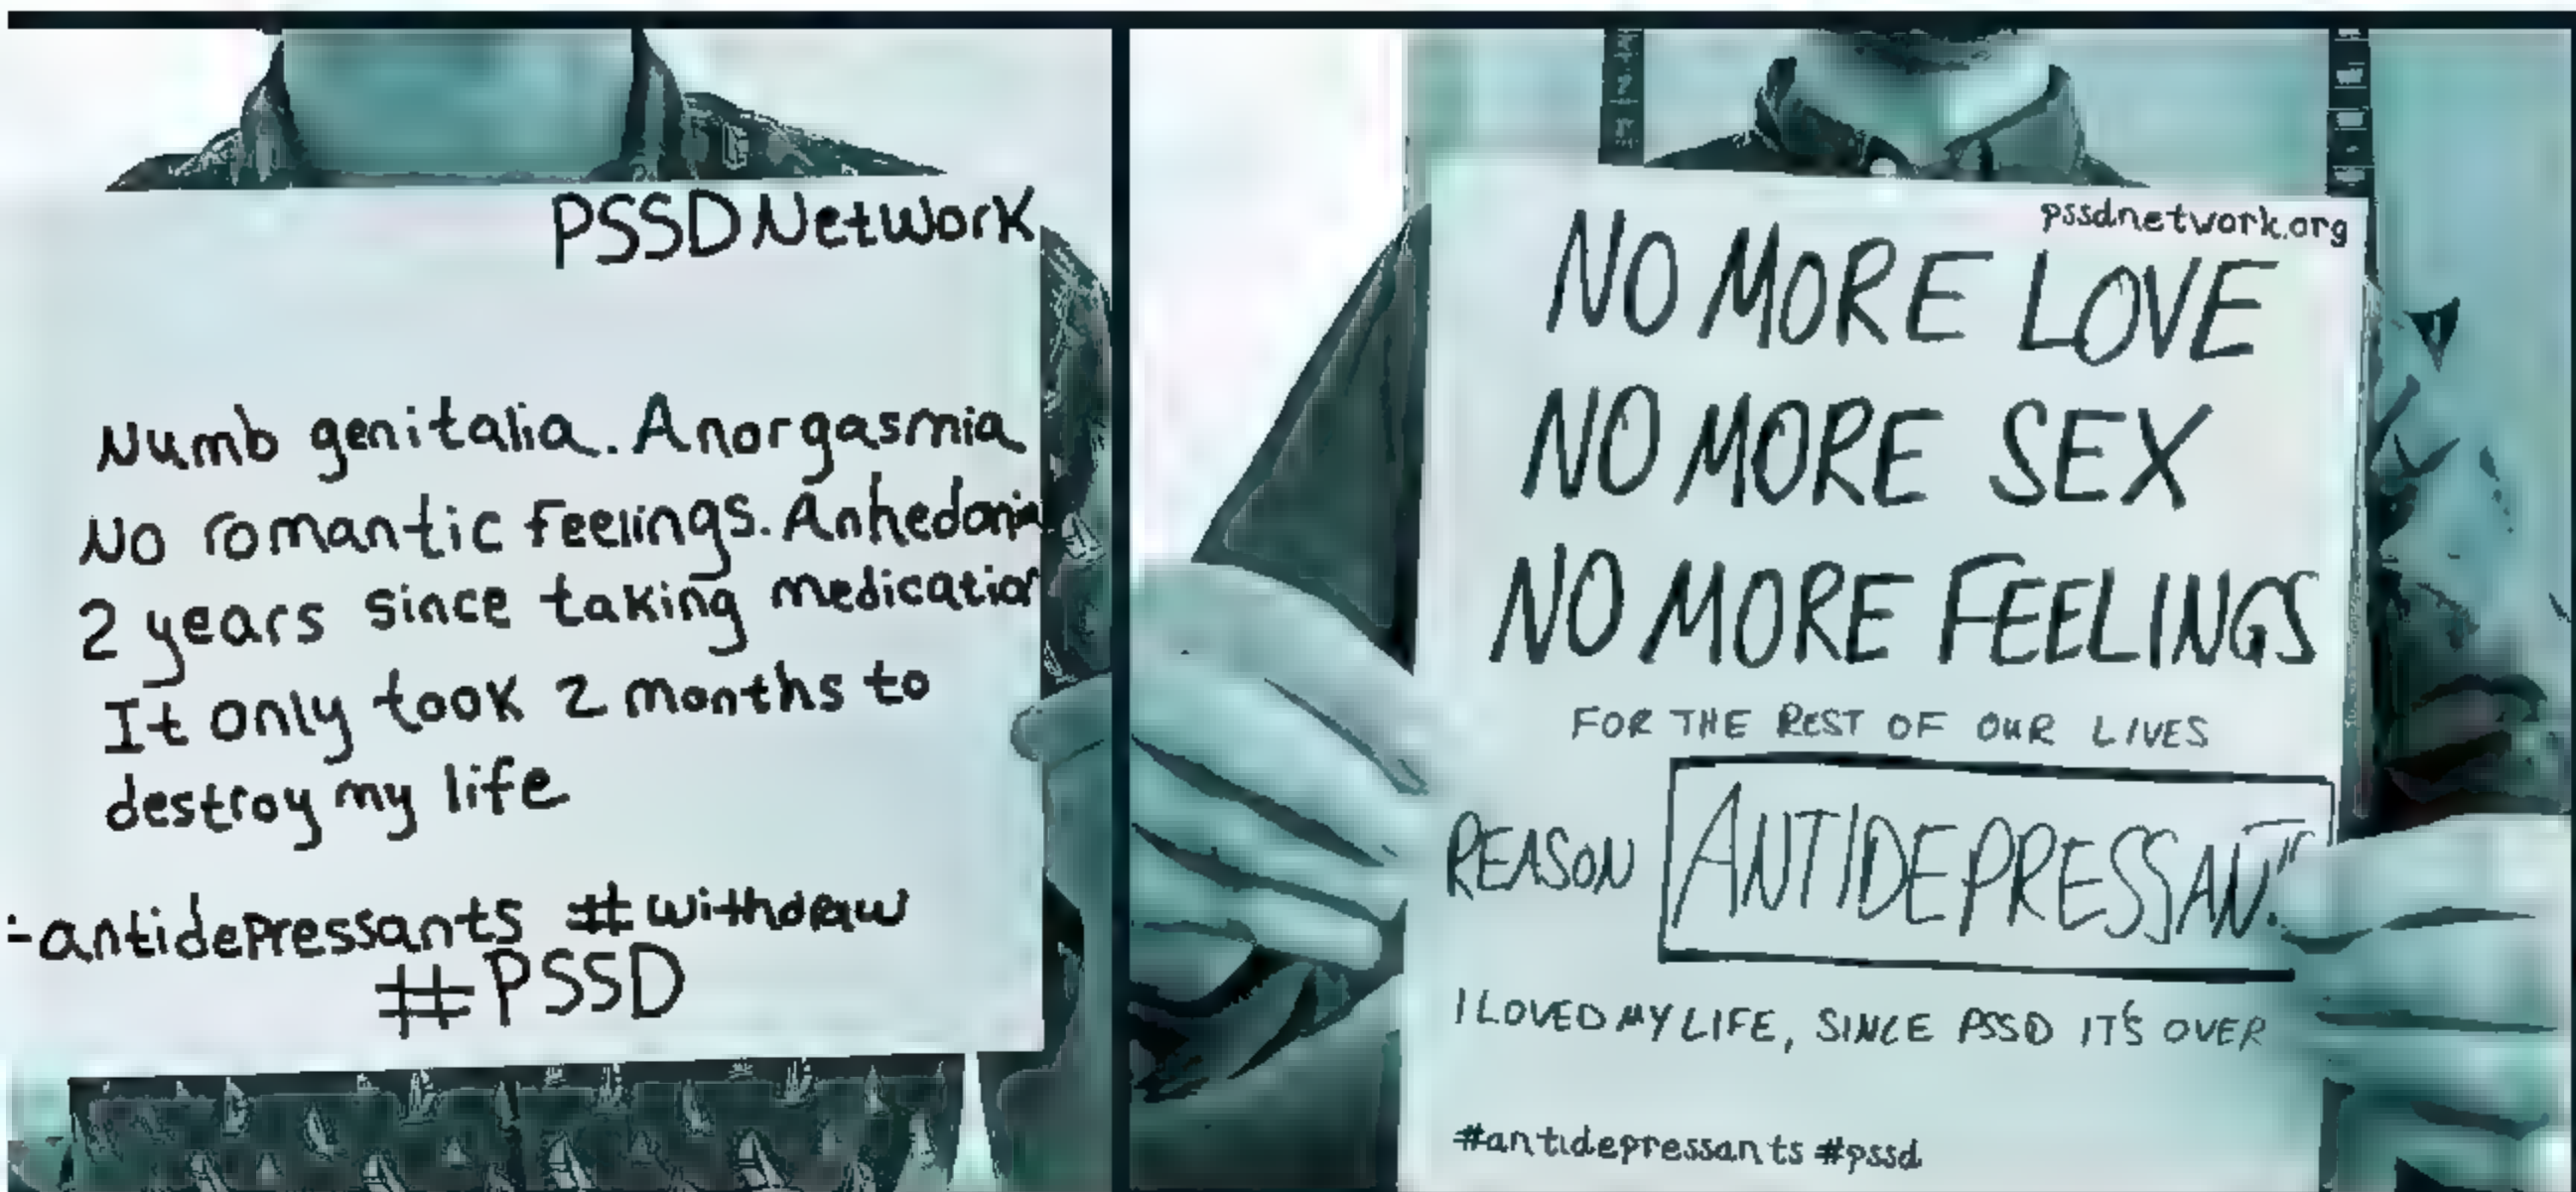 PSSD Network
Numb genitalia. Anorgasmia
No romantic feelings. Anhedonia
2 years since taking medication
It only took 2 months to
destroy my life
#antidepressants #withdraw
#PSSD
pssdnetwork.org
NO MORE LOVE
NO MORE SEX
NO MORE FEELINGS
FOR THE REST OF OUR LIVES
REASON ANTIDEPRESSANT
I LOVED MY LIFE, SINCE PSSD IT'S OVER
#antidepressants #pssd